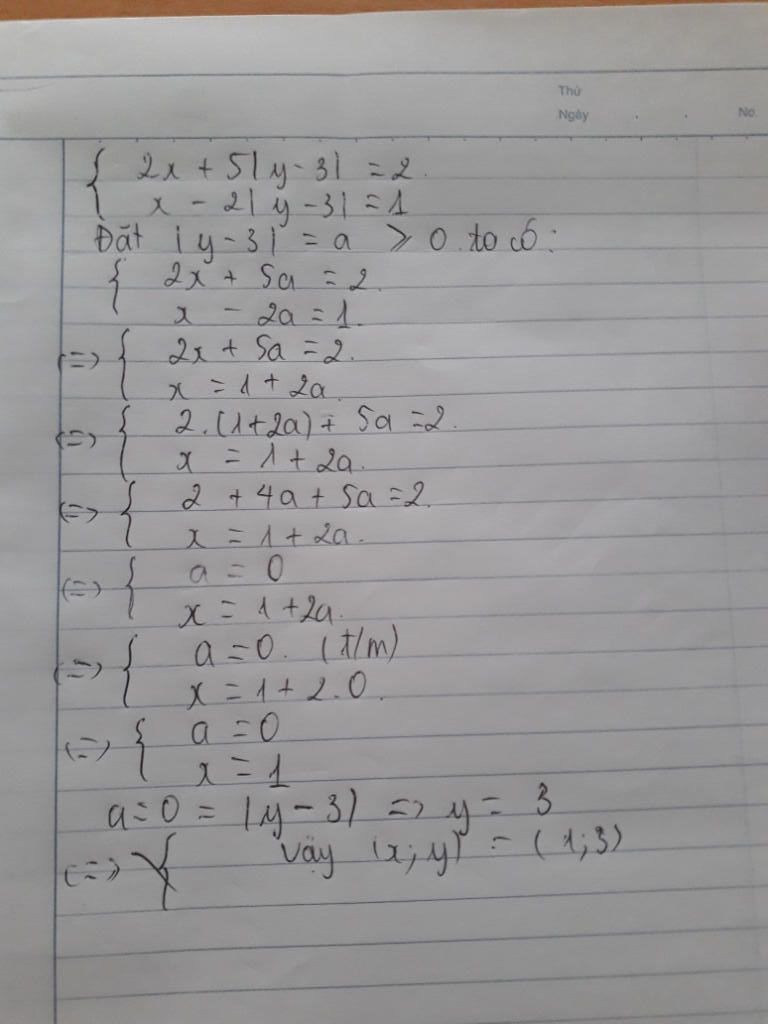 Thứ
Ngày . . No
{ 2x + 5|y - 3| = 2.
x - 2|y - 3| = 1
Đặt |y - 3| = a ⩾ 0. ta có:
{ 2x + 5a = 2.
x - 2a = 1.
(=) { 2x + 5a = 2.
x = 1 + 2a.
(=) { 2.(1+2a) + 5a = 2.
x = 1 + 2a.
(=) { 2 + 4a + 5a = 2.
x = 1 + 2a.
(=) { a = 0
x = 1 + 2a.
(=) { a = 0. (t/m)
x = 1 + 2.0.
(=) { a = 0
x = 1
a = 0 = |y - 3| => y = 3
(=) { Vậy (x; y) = (1; 3)